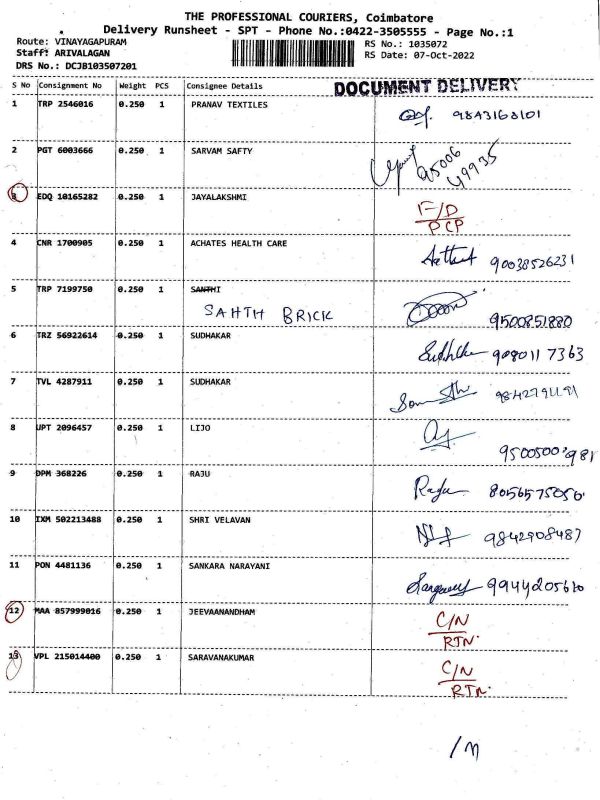 THE PROFESSIONAL COURIERS, Coimbatore
Delivery Runsheet - SPT - Phone No.:0422-3505555 - Page No.:1
Route: VINAYAGAPURAM
Staff: ARIVALAGAN
DRS No.: DCJB103507201
RS No.: 1035072
RS Date: 07-Oct-2022
S No Consignment No Weight PCS Consignee Details
DOCUMENT DELIVERY
1 TRP 2546016 0.250 1 PRANAV TEXTILES 9843168101
2 PGT 6003666 0.250 1 SARVAM SAFTY 95006 49935
3 EDQ 10165282 0.250 1 JAYALAKSHMI F/D
PCP
4 CNR 1700905 0.250 1 ACHATES HEALTH CARE 90038526231
5 TRP 7199750 0.250 1 SANTHI
SAHTH BRICK 9500851880
6 TRZ 56922614 0.250 1 SUDHAKAR 9080117363
7 TVL 4287911 0.250 1 SUDHAKAR
8 UPT 2096457 0.250 1 LIJO
9 DPM 368226 0.250 1 RAJU Raju 8056575050
10 IXM 502213488 0.250 1 SHRI VELAVAN 9842908487
11 PON 4481136 0.250 1 SANKARA NARAYANI 9944205610
12 MAA 857999016 0.250 1 JEEVAANANDHAM C/N
RTN.
13 VPL 215014400 0.250 1 SARAVANAKUMAR C/N
RTN.